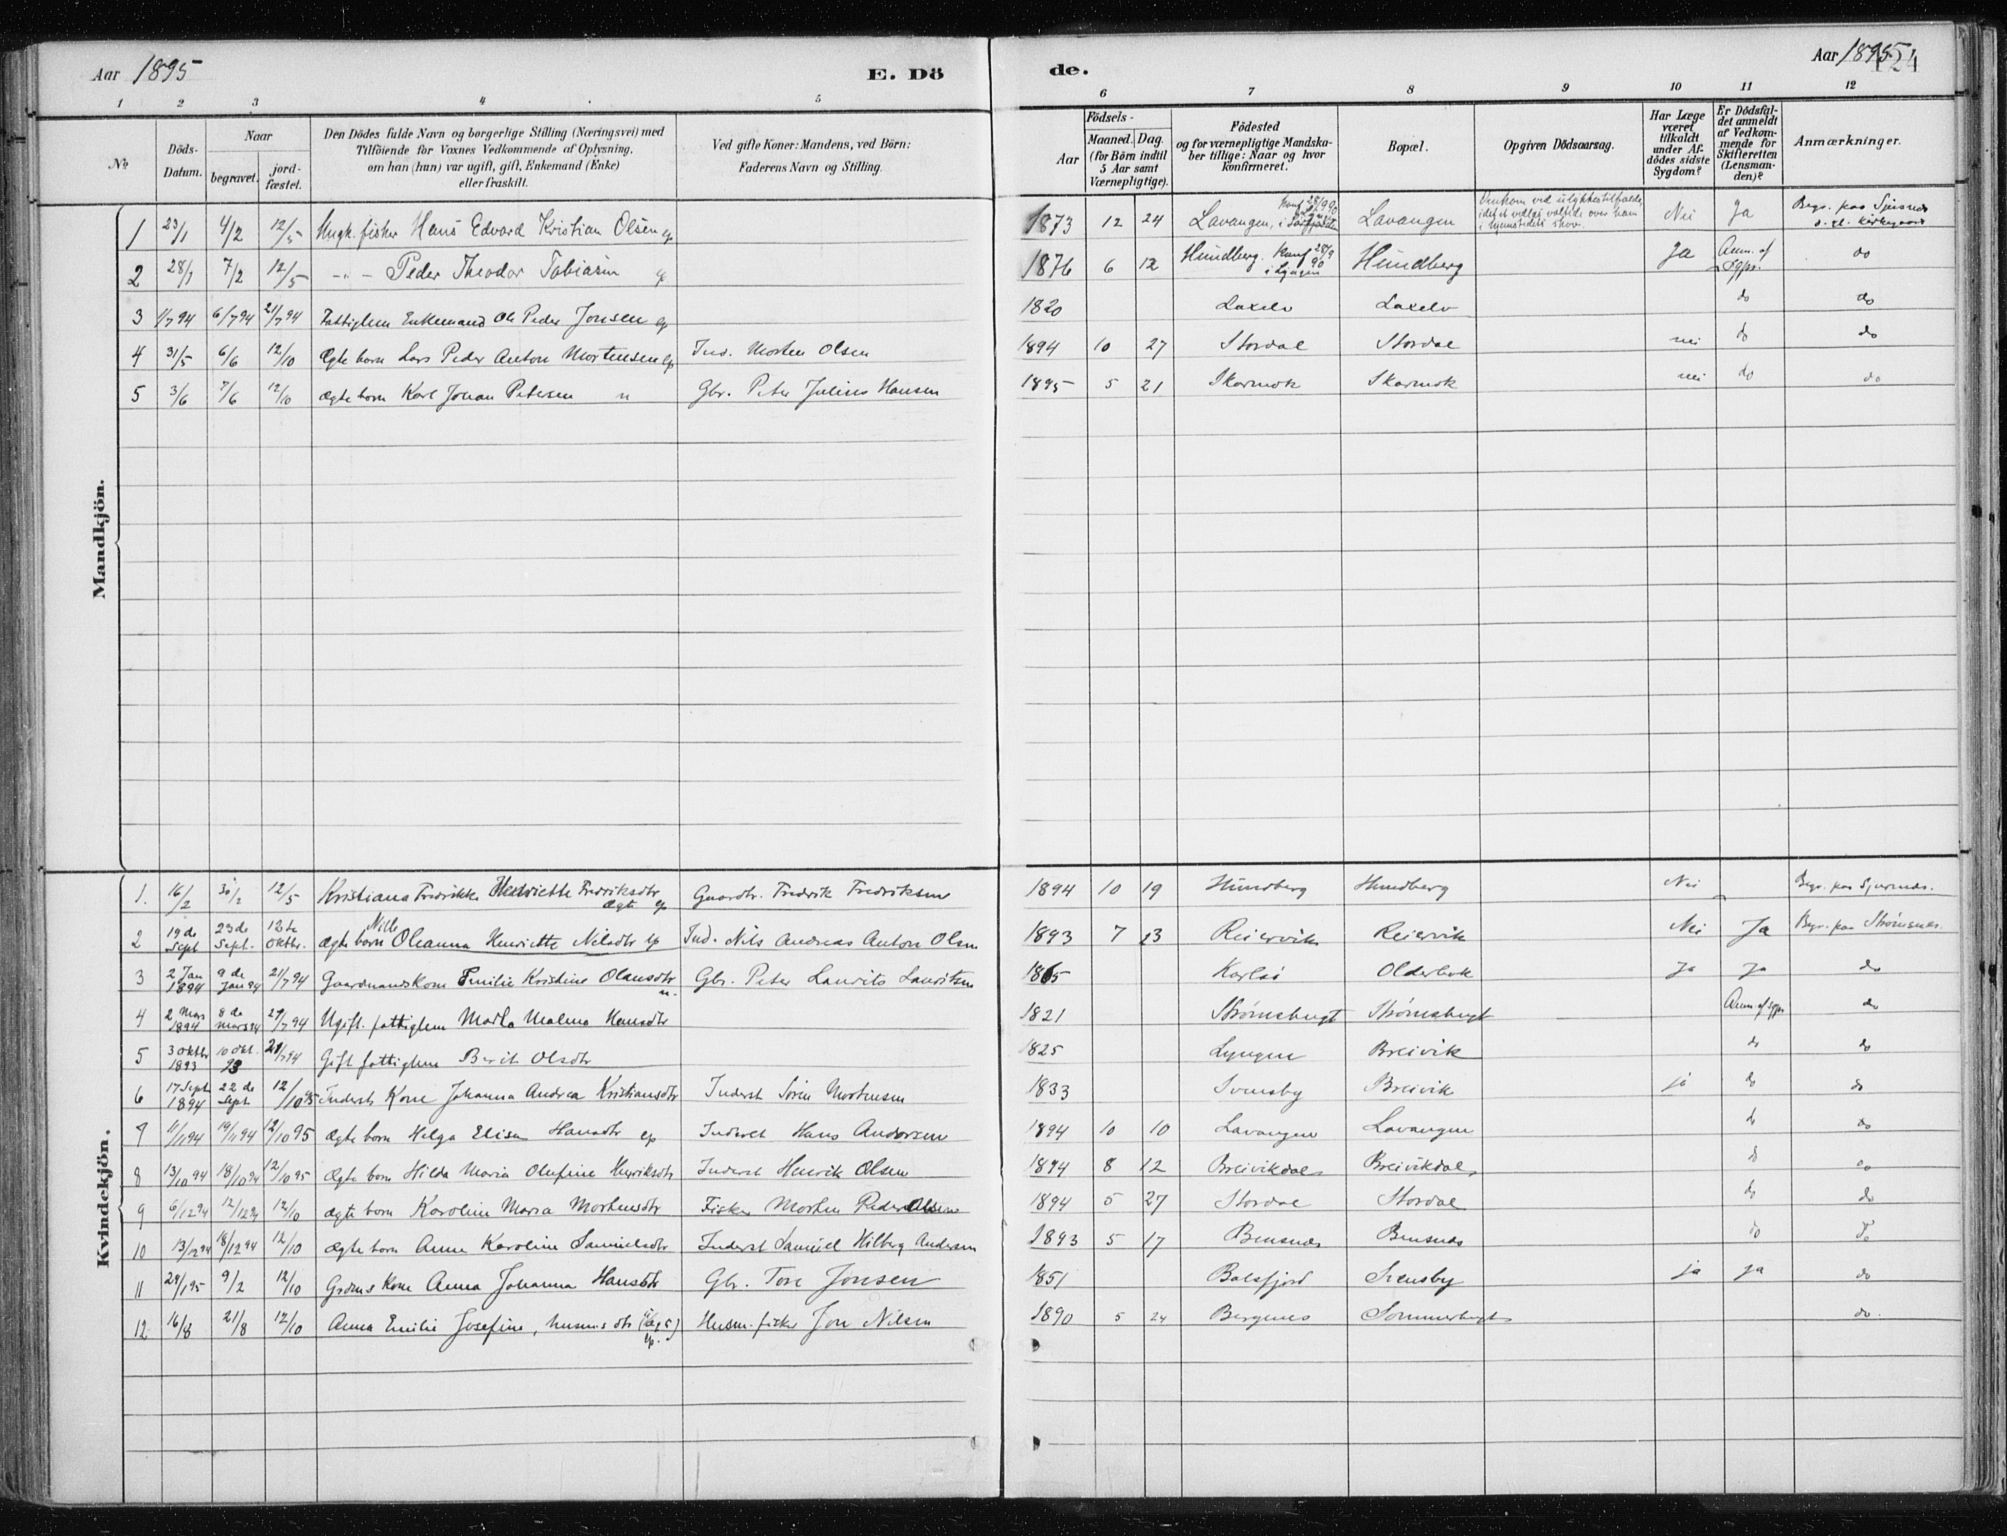 Aar 1895 E. Dö de. Aar 1895 424
1 2 3 4 5 6 7 8 9 10 11 12
No Döds-Datum. Naar begravet. jord-fæstet. Den Dödes fulde Navn og borgerlige Stilling (Næringsvei) med Tilföiende for Voxnes Vedkommende af Oplysning, om han (hun) var ugift, gift, Enkemand (Enke) eller fraskilt. Ved gifte Koner: Mandens, ved Börn: Faderens Navn og Stilling. Aar Födsels- Maaned. Dag. (for Börn indtil 5 Aar samt Værnepligtige). Födested og for værnepligtige Mandskaber tillige: Naar og hvor konfirmeret. Bopæl. Opgiven Dödsaarsag. Har Læge været tilkaldt under Afdödes sidste Sygdom? Er Dödsfaldet anmeldt af Vedkommende for Skifteretten (Lensmanden)? Anmærkninger.
Mandkjön.
1 23/1 4/2 12/5 Ungk. fisker Hans Edvard Kristian Olsen ep 1873 12 24 Lavangen, Lavangen Omkom ved ulykkestilfælde, Nei Ja
2 28/1 7/2 12/5 -"- Peder Theodor Tobiasen 1876 6 12 Hundberg. Konf 28/9 90 i Lyngen Hundberg Ja Anm. af do
3 1/7 94 6/7 94 21/7 94 Fattiglem Enkemand Ole Peder Jonsen ep 1820 Laxelv Laxelv do do
4 31/5 6/6 12/10 Ægte barn Lars Peder Anton Mortensen ep Ind. Morten Olsen 1894 10 27 Stordal Stordal nei do do
5 3/6 7/6 12/10 ægte barn Karl Johan Petersen n Gbr. Peter Julius Hansen 1895 5 21 Skarmok Skarmok nei do do
Kvindekjön.
1. 16/2 12/5 Kristiana Fredrikke Henriette Fredriksdtr Ægte ep Gaardbr. Fredrik Fredriksen 1894 10 19 Hundberg Hundberg Nei
2 19de Sept 23de Sept. 12te Oktbr. ægte barn Nille Oleanna Henriette Nilsdtr ep Ind. Nils Andreas Anton Olsen 1893 7 13 Reiervik Reiervik Nei Ja Begr. paa Strømsnes.
3 2 Jan 1894 9de Jan 94 21/7 94 Gaardmandskone Emilie Kristine Olausdtr n. Gbr. Peter Laurits Lauritsen 1865 Karlsö Olderbak Ja Ja do
4 2 Mars 1894 8de Mars 94 21/7 94 Ugift fattiglem Malena Hansdtr 1821 Strømsbugt Strømsbugt do
5 3 Oktbr 1893 10 Okt. 93 21/7 94 Gift fattiglem Berit Olsdtr 1825 Lyngen Breivik do do
6 17 Sept 1894 22de Sept 12/10 95 Inderst Kone Johanna Andrea Kristiansdtr Inderst Sören Mortensen 1833 Svensby Breivik ja do do
7 11/11 94 19/11 94 12/10 95 ægte barn Helga Elisa Hansdtr ep Inderst Hans Andersen 1894 10 10 Lavangen Lavangen do do
8 13/10 94 18/10 94 12/10 95 ægte barn Hilda Maria Olufine Henriksdtr Inderst Henrik Olsen 1894 8 12 Breivikdal Breivikdal do do
9 6/12 94 12/12 94 12/10 ægte barn Karoline Maria Mortensdtr Fisker Morten Peder Olsen 1894 5 27 Stordal Stordal do do
10 13/12 94 18/12 94 12/10 ægte barn Anne Karoline Samuelsdtr Inderst Samuel Hilberg Andersen 1893 5 17 Bensnes Bensnes do do
11 29/1 95 9/2 12/10 Grdms kone Anna Johanna Hansdtr Gbr. Tore Jonsen 1851 Balsfjord Svensby ja ja do
12 16/8 21/8 12/10 Anna Emilie Josefine, husms dtr ep. Husm. fisker Jon Nilsen 1890 5 24 Bergenes Sommerbugt do.